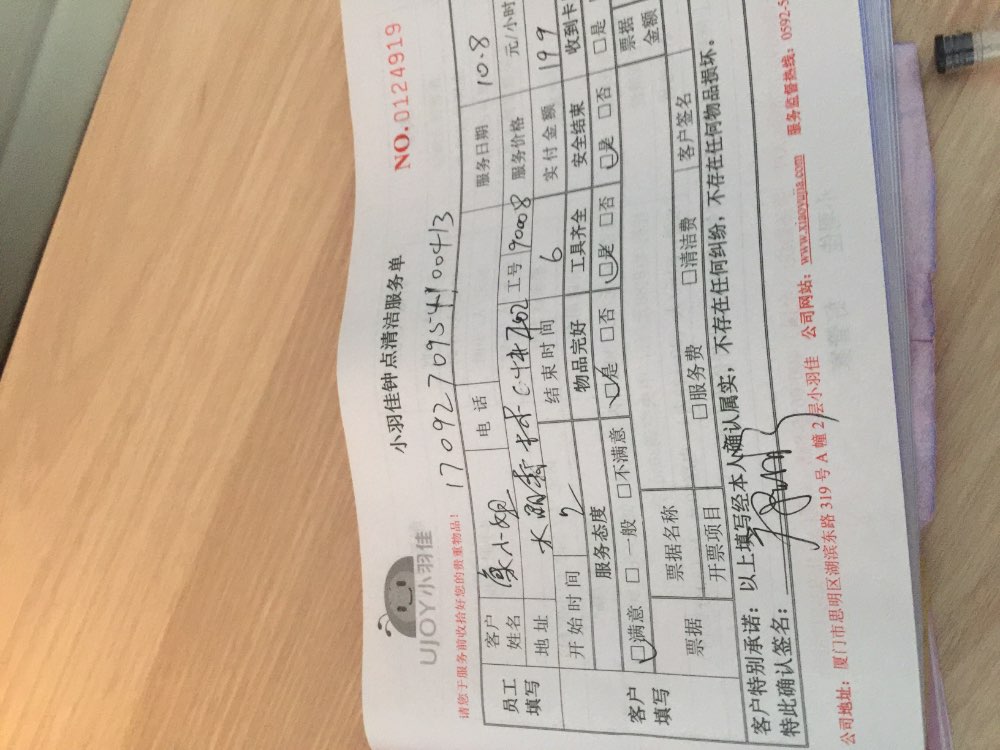 UJOY小羽佳
小羽佳钟点清洁服务单
NO.0124919
请您于服务前收拾好您的贵重物品!
1709270954100413
员工填写 客户姓名 小姐 电话 服务日期 10.8
地址 工号 90008 服务价格 元/小时
开始时间 2 结束时间 6 实付金额 199
客户填写 服务态度 物品完好 工具齐全 安全结束 收到卡
□满意 □一般 □不满意 □是 □否 □是 □否 □是 □否 □是
票据 票据名称 票据金额
开票项目 □服务费 □清洁费 客户签名
客户特别承诺:以上填写经本人确认属实,不存在任何纠纷,不存在任何物品损坏。
特此确认签名:
公司地址:厦门市思明区湖滨东路319号A幢2层小羽佳 公司网站:www.xiaoyujia.com 服务监督热线:0592-5